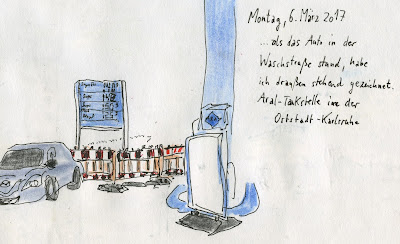 Montag, 6. März 2017
...als das Auto in der
Waschstraße stand, habe
ich draußen stehend gezeichnet.
Aral-Tankstelle in der
Oststadt-Karlsruhe